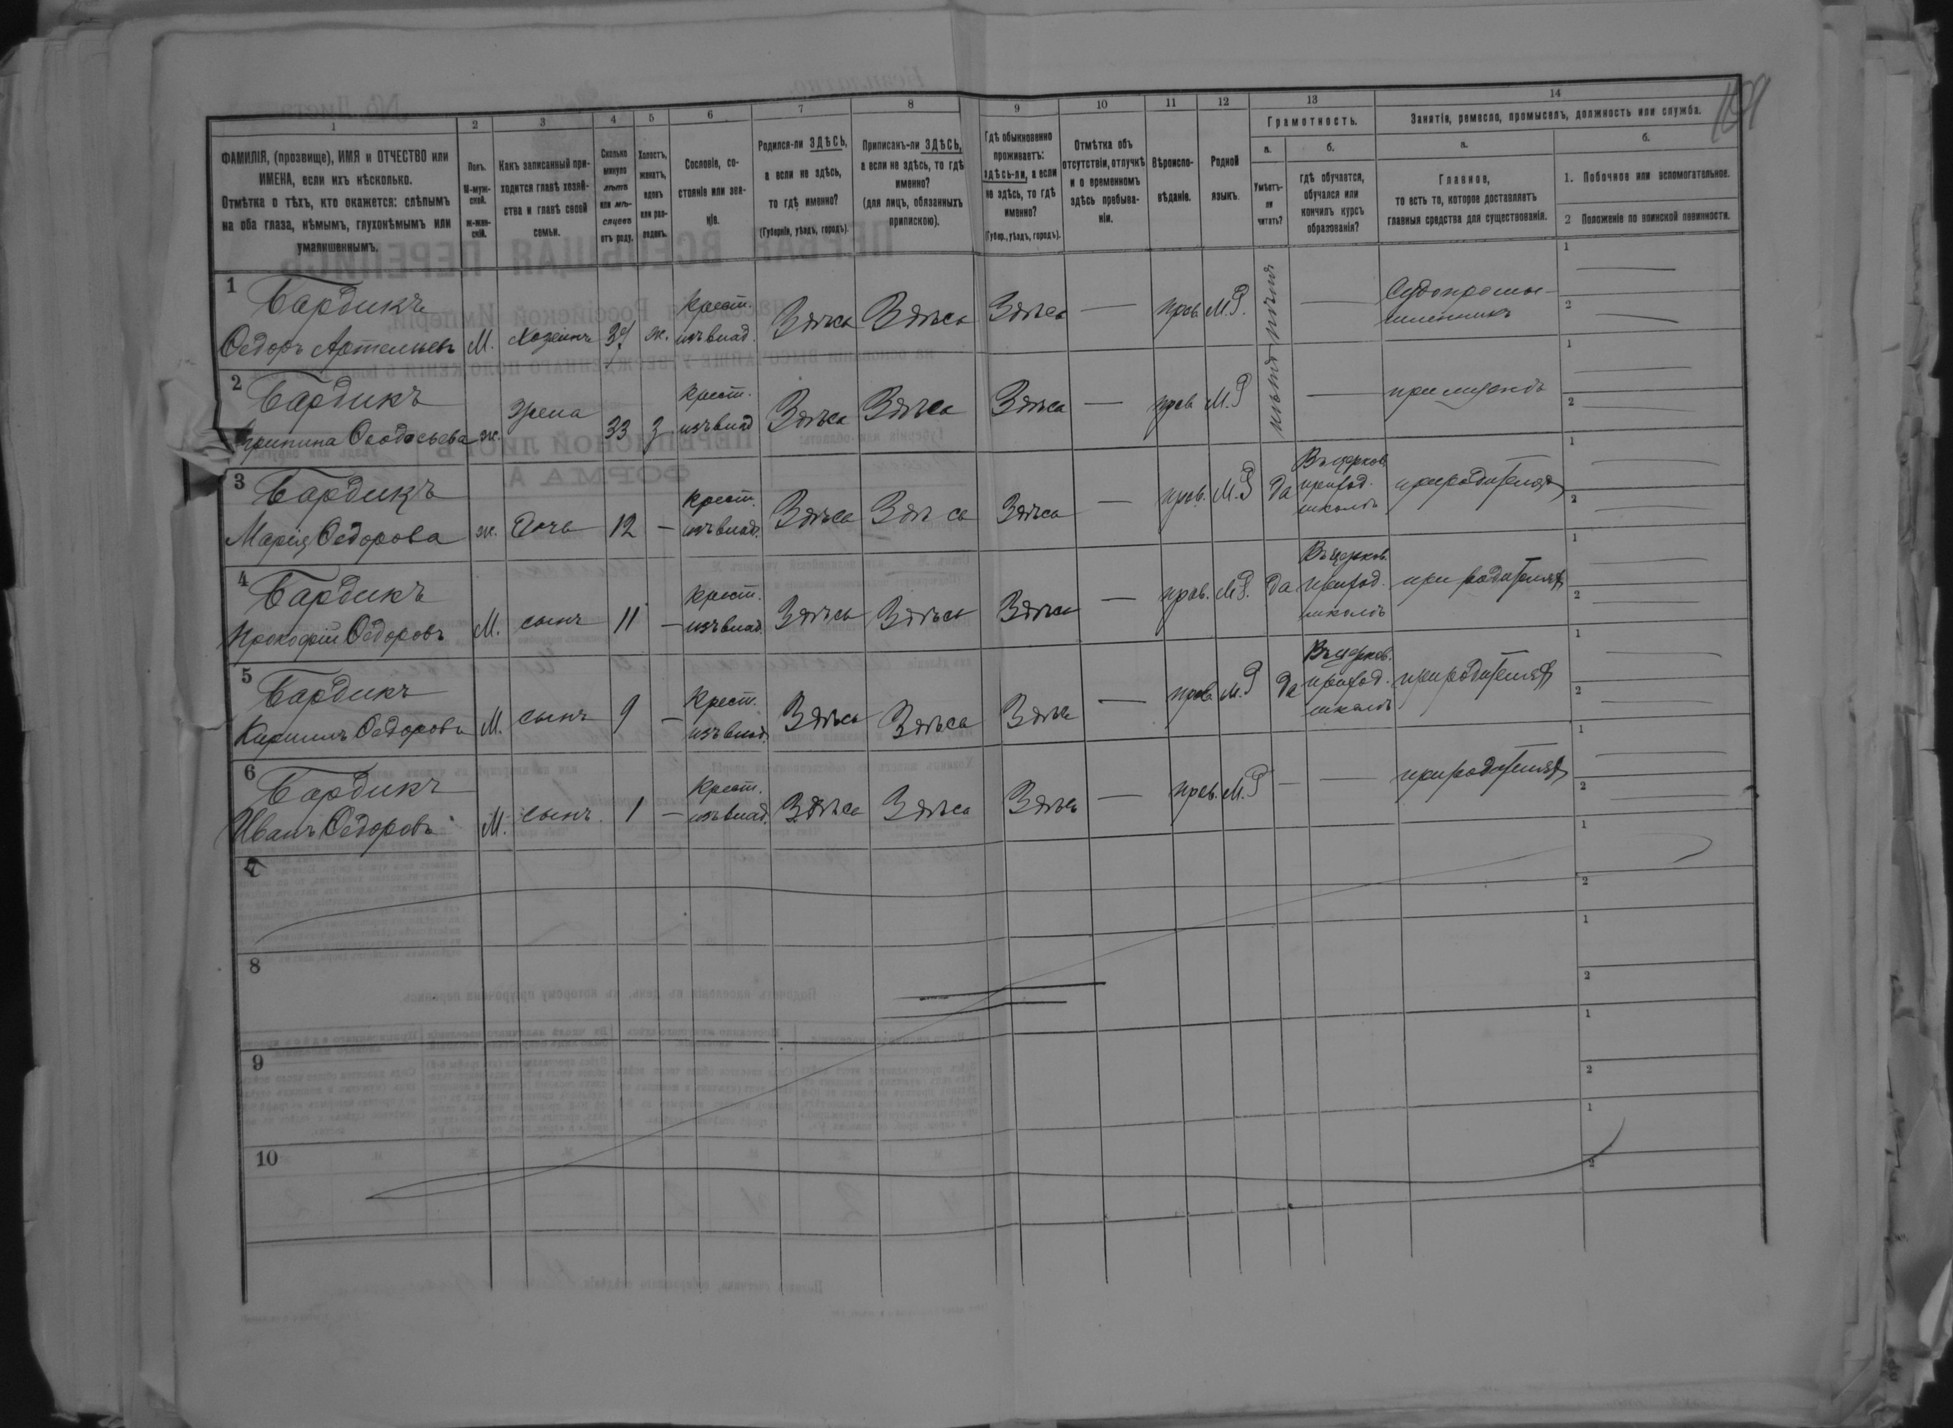 1
2
3
4
5
6
7
8
9
10
11
12
13
14
ФАМИЛІЯ, (прозвище), ИМЯ и ОТЧЕСТВО или
ИМЕНА, если ихъ нѣсколько.
Отмѣтка о тѣхъ, кто окажется: слѣпымъ
на оба глаза, нѣмымъ, глухонѣмымъ или
умалишеннымъ.
Полъ.
М-муж-
ской.
Ж-жен-
скій.
Какъ записанный при-
ходится главѣ хозяй-
ства и главѣ своей
семьи.
Сколько
минуло
лѣтъ
или мѣ-
сяцевъ
отъ роду.
Холостъ,
женатъ,
вдовъ
или раз-
веденъ.
Сословіе, со-
стояніе или зва-
ніе.
Родился-ли ЗДѢСЬ,
а если не здѣсь,
то гдѣ именно?
(Губернія, уѣздъ, городъ).
Приписанъ-ли ЗДѢСЬ,
а если не здѣсь, то гдѣ
именно?
(для лицъ, обязанныхъ
припискою).
Гдѣ обыкновенно
проживаетъ:
здѣсь-ли, а если
не здѣсь, то гдѣ
именно?
(Губер., уѣздъ, городъ).
Отмѣтка объ
отсутствіи, отлучкѣ
и о временномъ
здѣсь пребыва-
ніи.
Вѣроиспо-
вѣданіе.
Родной
языкъ.
Грамотность.
а.
Умѣетъ-
ли
читать?
б.
гдѣ обучается,
обучался или
кончилъ курсъ
образованія?
Занятія, ремесло, промыселъ, должность или служба.
а.
Главное,
то есть то, которое доставляетъ
главныя средства для существованія.
б.
1. Побочное или вспомогательное.
2 Положеніе по воинской повинности.
1
Бардикъ
Ѳедоръ Артемьевъ М. Хозяинъ 37 ж. Крест. изъ влад. Здѣсь Здѣсь Здѣсь — прав. М.Р. нѣтъ — Судопромы-
шленникъ
2
Бардикъ
Ѳеодосьева ж. Жена 33 з. Крест. изъ влад Здѣсь Здѣсь Здѣсь — прав М.Р нѣтъ — при мужѣ
3
Бардикъ
Марія Ѳедорова ж. Дочь 12 — Крест. изъ влад. Здѣсь Здѣсь Здѣсь — прав. М.Р да Въ церков.
приход.
школѣ при родителяхъ
4
Бардикъ
Прокофій Ѳедоровъ М. сынъ 11 — Крест. изъ влад. Здѣсь Здѣсь Здѣсь — прав. М.Р. да Въ церков.
приход.
школѣ при родителяхъ
5
Бардикъ
Кириллъ Ѳедоровъ М. сынъ 9 — Крест. изъ влад. Здѣсь Здѣсь Здѣсь — прав М.Р да Въ церков.
приход.
школѣ при родителяхъ
6
Бардикъ
Иванъ Ѳедоровъ М. сынъ 1 — Крест. изъ влад. Здѣсь Здѣсь Здѣсь — прав. М.Р — — при родителяхъ
7
8
9
10